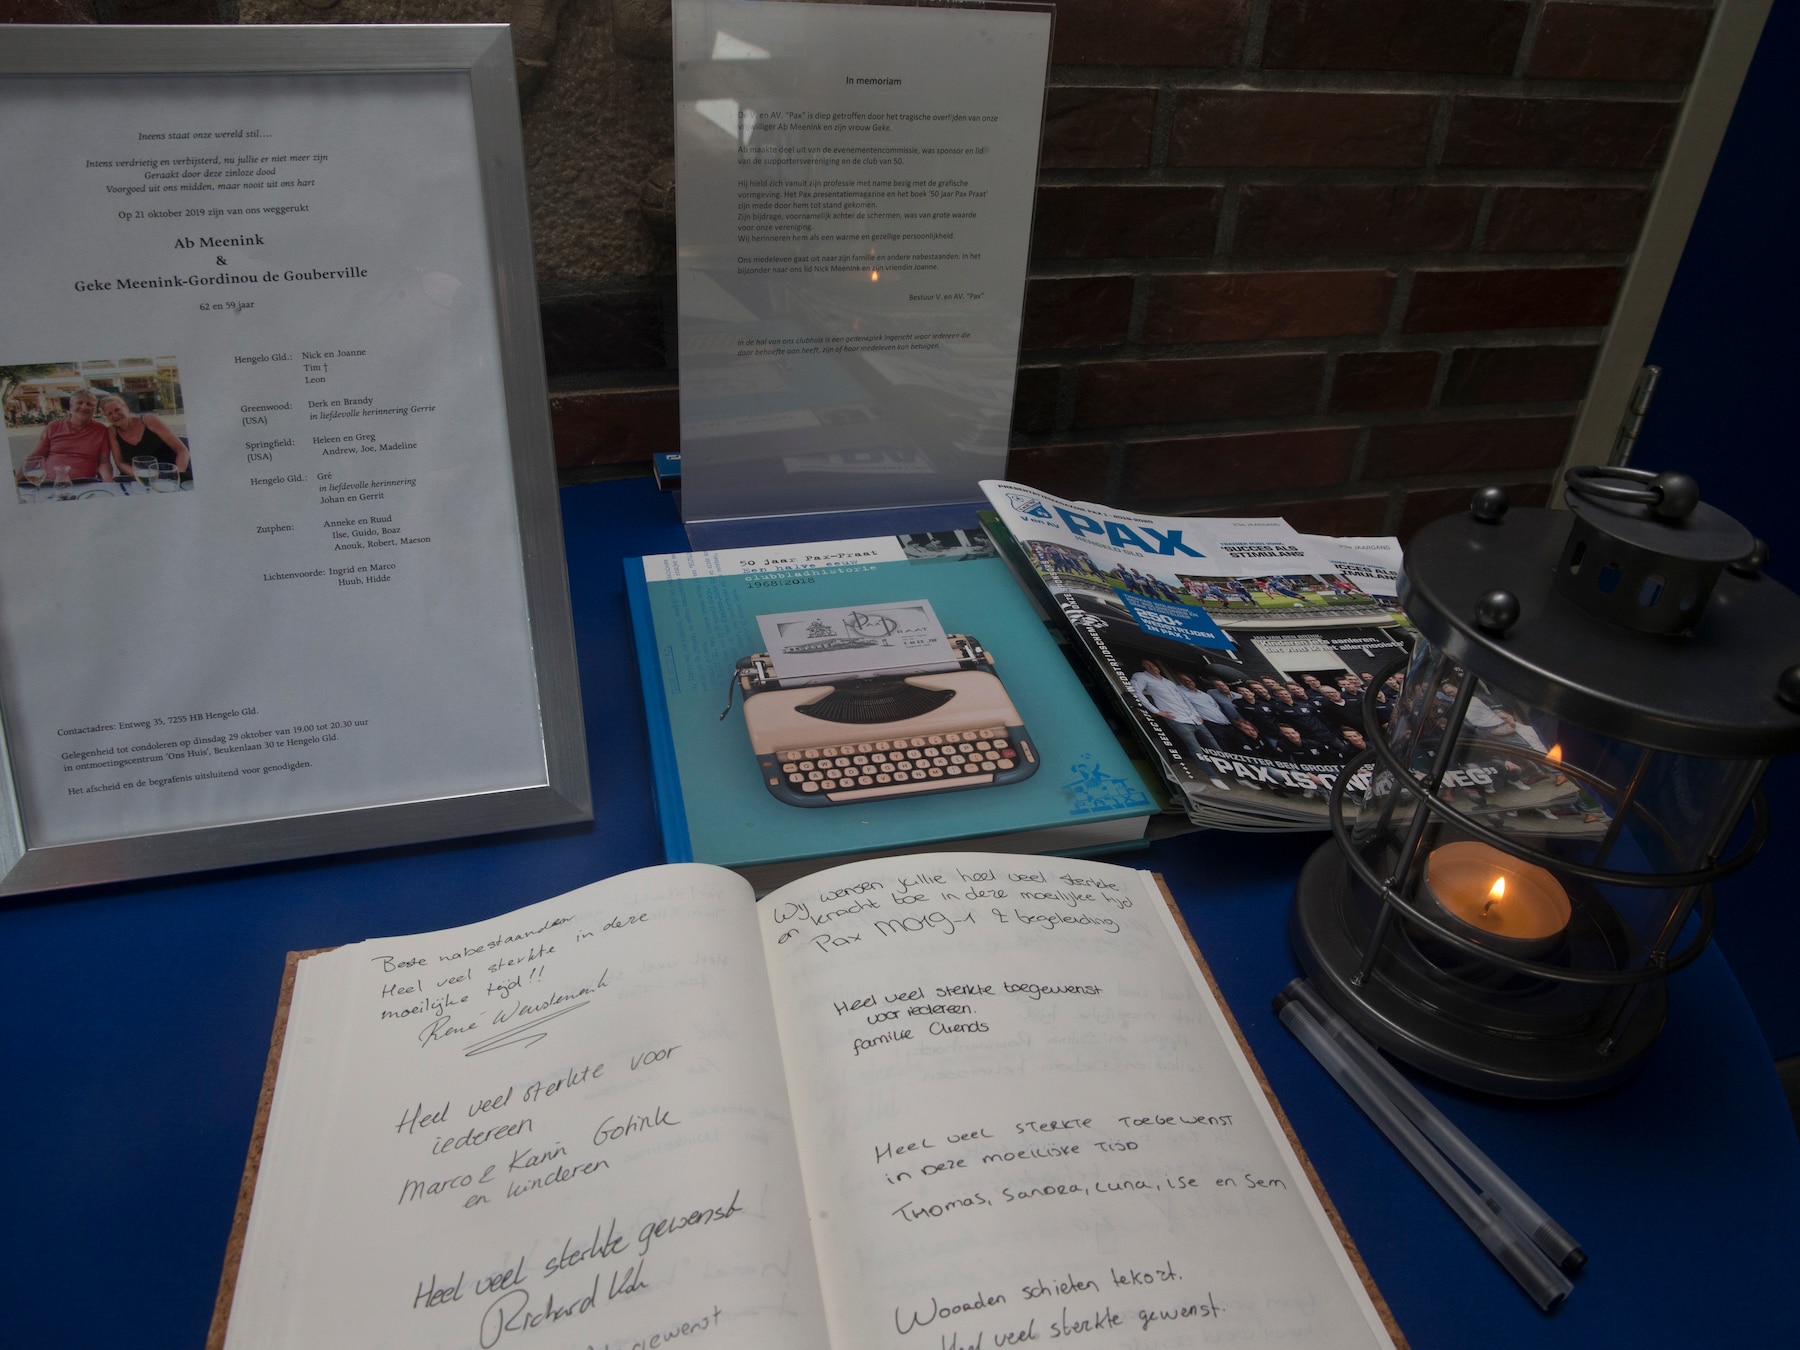 Ineens staat onze wereld stil....
Intens verdrietig en verbijsterd, nu jullie er niet meer zijn
Geraakt door deze zinloze dood
Voorgoed uit ons midden, maar nooit uit ons hart
Op 21 oktober 2019 zijn van ons weggerukt
Ab Meenink
&
Geke Meenink-Gordinou de Gouberville
62 en 59 jaar
Hengelo Gld.: Nick en Joanne
Tim †
Leon
Greenwood: Derk en Brandy
(USA) in liefdevolle herinnering Gerrie
Springfield: Heleen en Greg
(USA) Andrew, Joe, Madeline
Hengelo Gld.: Gré
in liefdevolle herinnering
Johan en Gerrit
Zutphen: Anneke en Ruud
Ilse, Guido, Boaz
Anouk, Robert, Maeson
Lichtenvoorde: Ingrid en Marco
Huub, Hidde
Contactadres: Entweg 35, 7255 HB Hengelo Gld.
Gelegenheid tot condoleren op dinsdag 29 oktober van 19.00 tot 20.30 uur
in ontmoetingscentrum 'Ons Huis', Beukenlaan 30 te Hengelo Gld.
Het afscheid en de begrafenis uitsluitend voor genodigden.
In memoriam
De V. en AV. "Pax" is diep getroffen door het tragische overlijden van onze
vrijwilliger Ab Meenink en zijn vrouw Geke.
Ab maakte deel uit van de evenementencommissie, was sponsor en lid
van de supportersvereniging en de club van 50.
Hij hield zich vanuit zijn professie met name bezig met de grafische
vormgeving. Het Pax presentatiemagazine en het boek '50 jaar Pax Praat'
zijn mede door hem tot stand gekomen.
Zijn bijdrage, voornamelijk achter de schermen, was van grote waarde
voor onze vereniging.
Wij herinneren hem als een warme en gezellige persoonlijkheid.
Ons medeleven gaat uit naar zijn familie en andere nabestaanden. In het
bijzonder naar ons lid Nick Meenink en zijn vriendin Joanne.
Bestuur V. en AV. "Pax"
In de hal van ons clubhuis is een gedenkplek ingericht waar iedereen die
daar behoefte aan heeft, zijn of haar medeleven kan betuigen.
50 jaar Pax-Praat
Een halve eeuw
clubbladhistorie
1968|2018
PAX PRAAT
PRESENTATIEMAGAZINE PAX 1 - 2019-2020
V en AV
PAX
HENGELO GLD
TRAINER
'SUCCES ALS
STIMULANS'
250+
WEDSTRIJDEN
IN PAX 1
VOORZITTER BEN GROOT
"PAX IS
WEG"
Beste nabestaanden
Heel veel sterkte in deze
moeilijke tijd!!
René
Heel veel sterkte voor
iedereen
Marco & Karin Gotink
en kinderen
Heel veel sterkte gewenst
Richard
gewenst
Wij wensen jullie heel veel sterkte
en kracht toe in deze moeilijke tijd
Pax MO19-1 & begeleiding
Heel veel sterkte toegewenst
voor iedereen.
familie
Heel veel sterkte toegewenst
in deze moeilijke tijd
Thomas, Sandra, Luna, Ise en Sem
Woorden schieten tekort.
Heel veel sterkte gewenst.